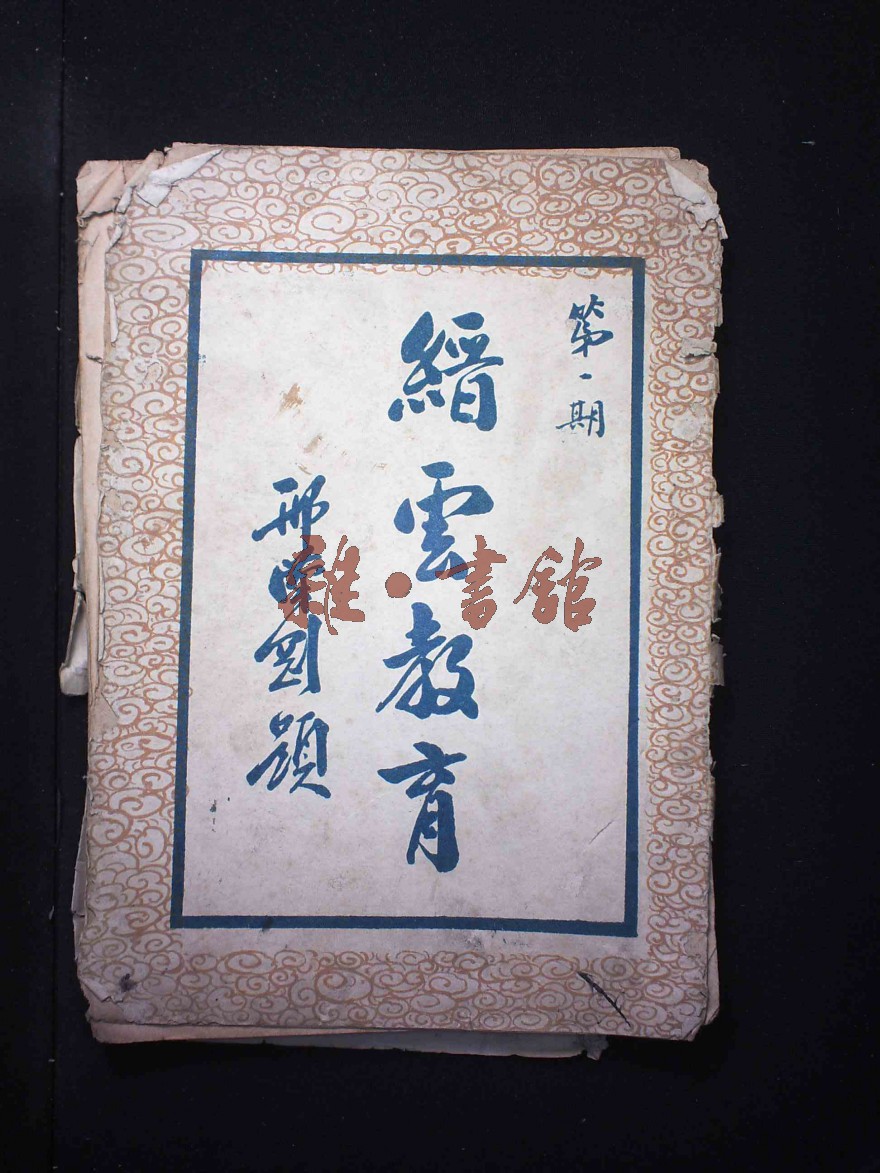 第一期
縉雲教育
邢題
雜·書館